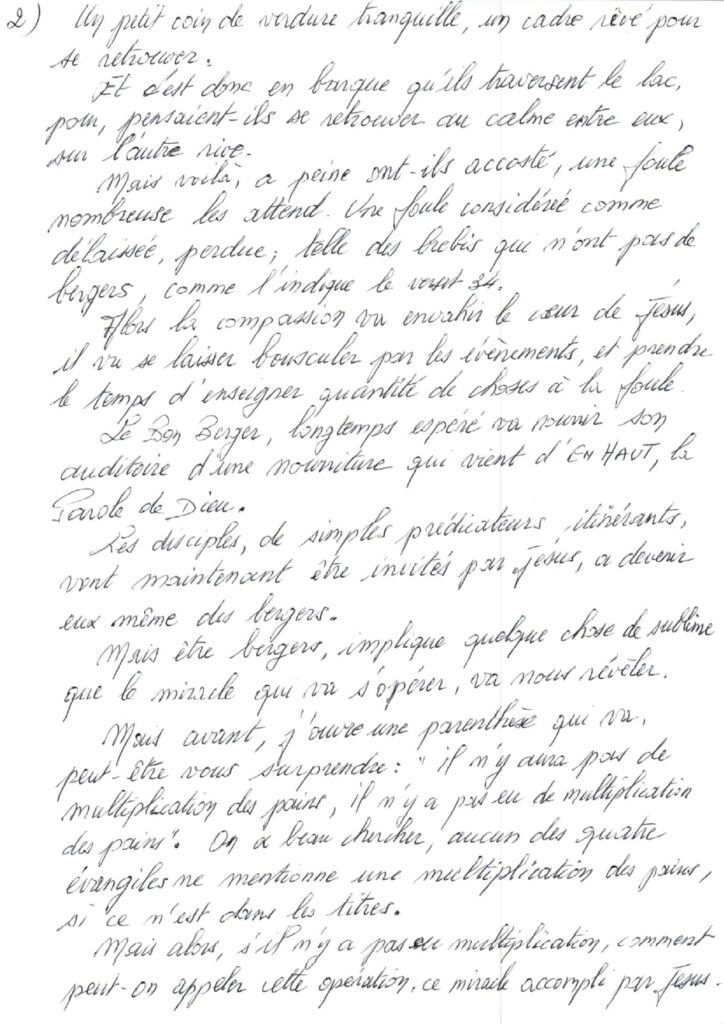 2) Un petit coin de verdure tranquille, un cadre rêvé pour
se retrouver.
Et c'est donc en barque qu'ils traversent le lac,
pour, pensaient-ils se retrouver au calme entre eux,
sur l'autre rive.
Mais voilà, a peine ont-ils accosté, une foule
nombreuse les attend. Une foule considérée comme
délaissée, perdue; telle des brebis qui n'ont pas de
bergers, comme l'indique le verset 34.
Alors la compassion va envahir le cœur de Jésus,
il va se laisser bousculer par les évènements, et prendre
le temps d'enseigner quantité de choses à la foule.
Le Bon Berger, longtemps espéré va nourrir son
auditoire d'une nourriture qui vient d'EN HAUT, la
Parole de Dieu.
Les disciples, de simples prédicateurs itinérants,
vont maintenant être invités par Jésus, a devenir
eux même des bergers.
Mais être bergers, implique quelque chose de sublime
que le miracle qui va s'opérer, va nous révéler.
Mais avant, j'ouvre une parenthèse qui va,
peut-être vous surprendre: "il n'y aura pas de
multiplication des pains, il n'y a pas eu de multiplication
des pains". On a beau chercher, aucun des quatre
évangiles ne mentionne une multiplication des pains,
si ce n'est dans les titres.
Mais alors, s'il n'y a pas eu multiplication, comment
peut-on appeler cette opération, ce miracle accompli par Jésus.